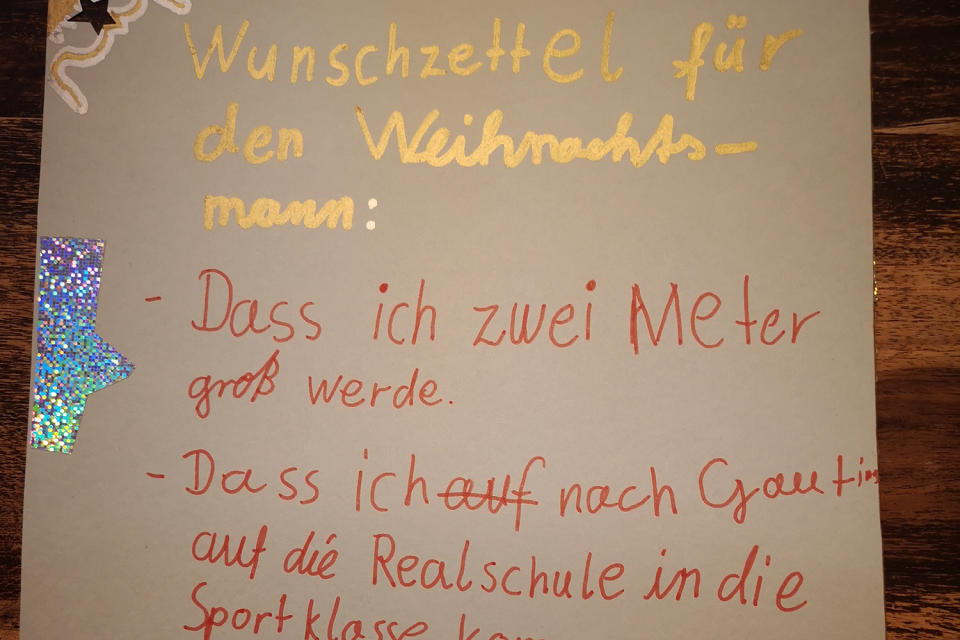 Wunschzettel für
den Weihnachts-
mann:
- Dass ich zwei Meter
groß werde.
- Dass ich auf nach
auf die Realschule in die
Sportklasse